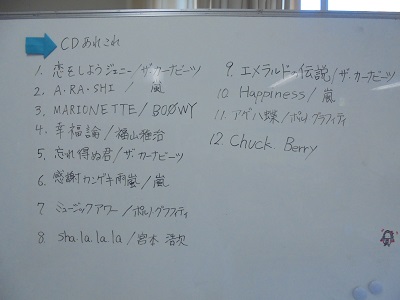 CDあれこれ
1. 恋をしようジニー/ザ・カーナビーツ
2. A・RA・SHI / 嵐
3. MARIONETTE/BOØWY
4. 幸福論/福山雅治
5. 忘れ得ぬ君/ザ・カーナビーツ
6. 感謝カンゲキ雨嵐/嵐
7. ミュージックアワー/ポルノグラフィティ
8. sha.la la la/宮本 浩次
9. エメラルドの伝説/ザ・カーナビーツ
10. Happiness/嵐
11. アゲハ蝶/ポルノグラフィティ
12. Chuck. Berry